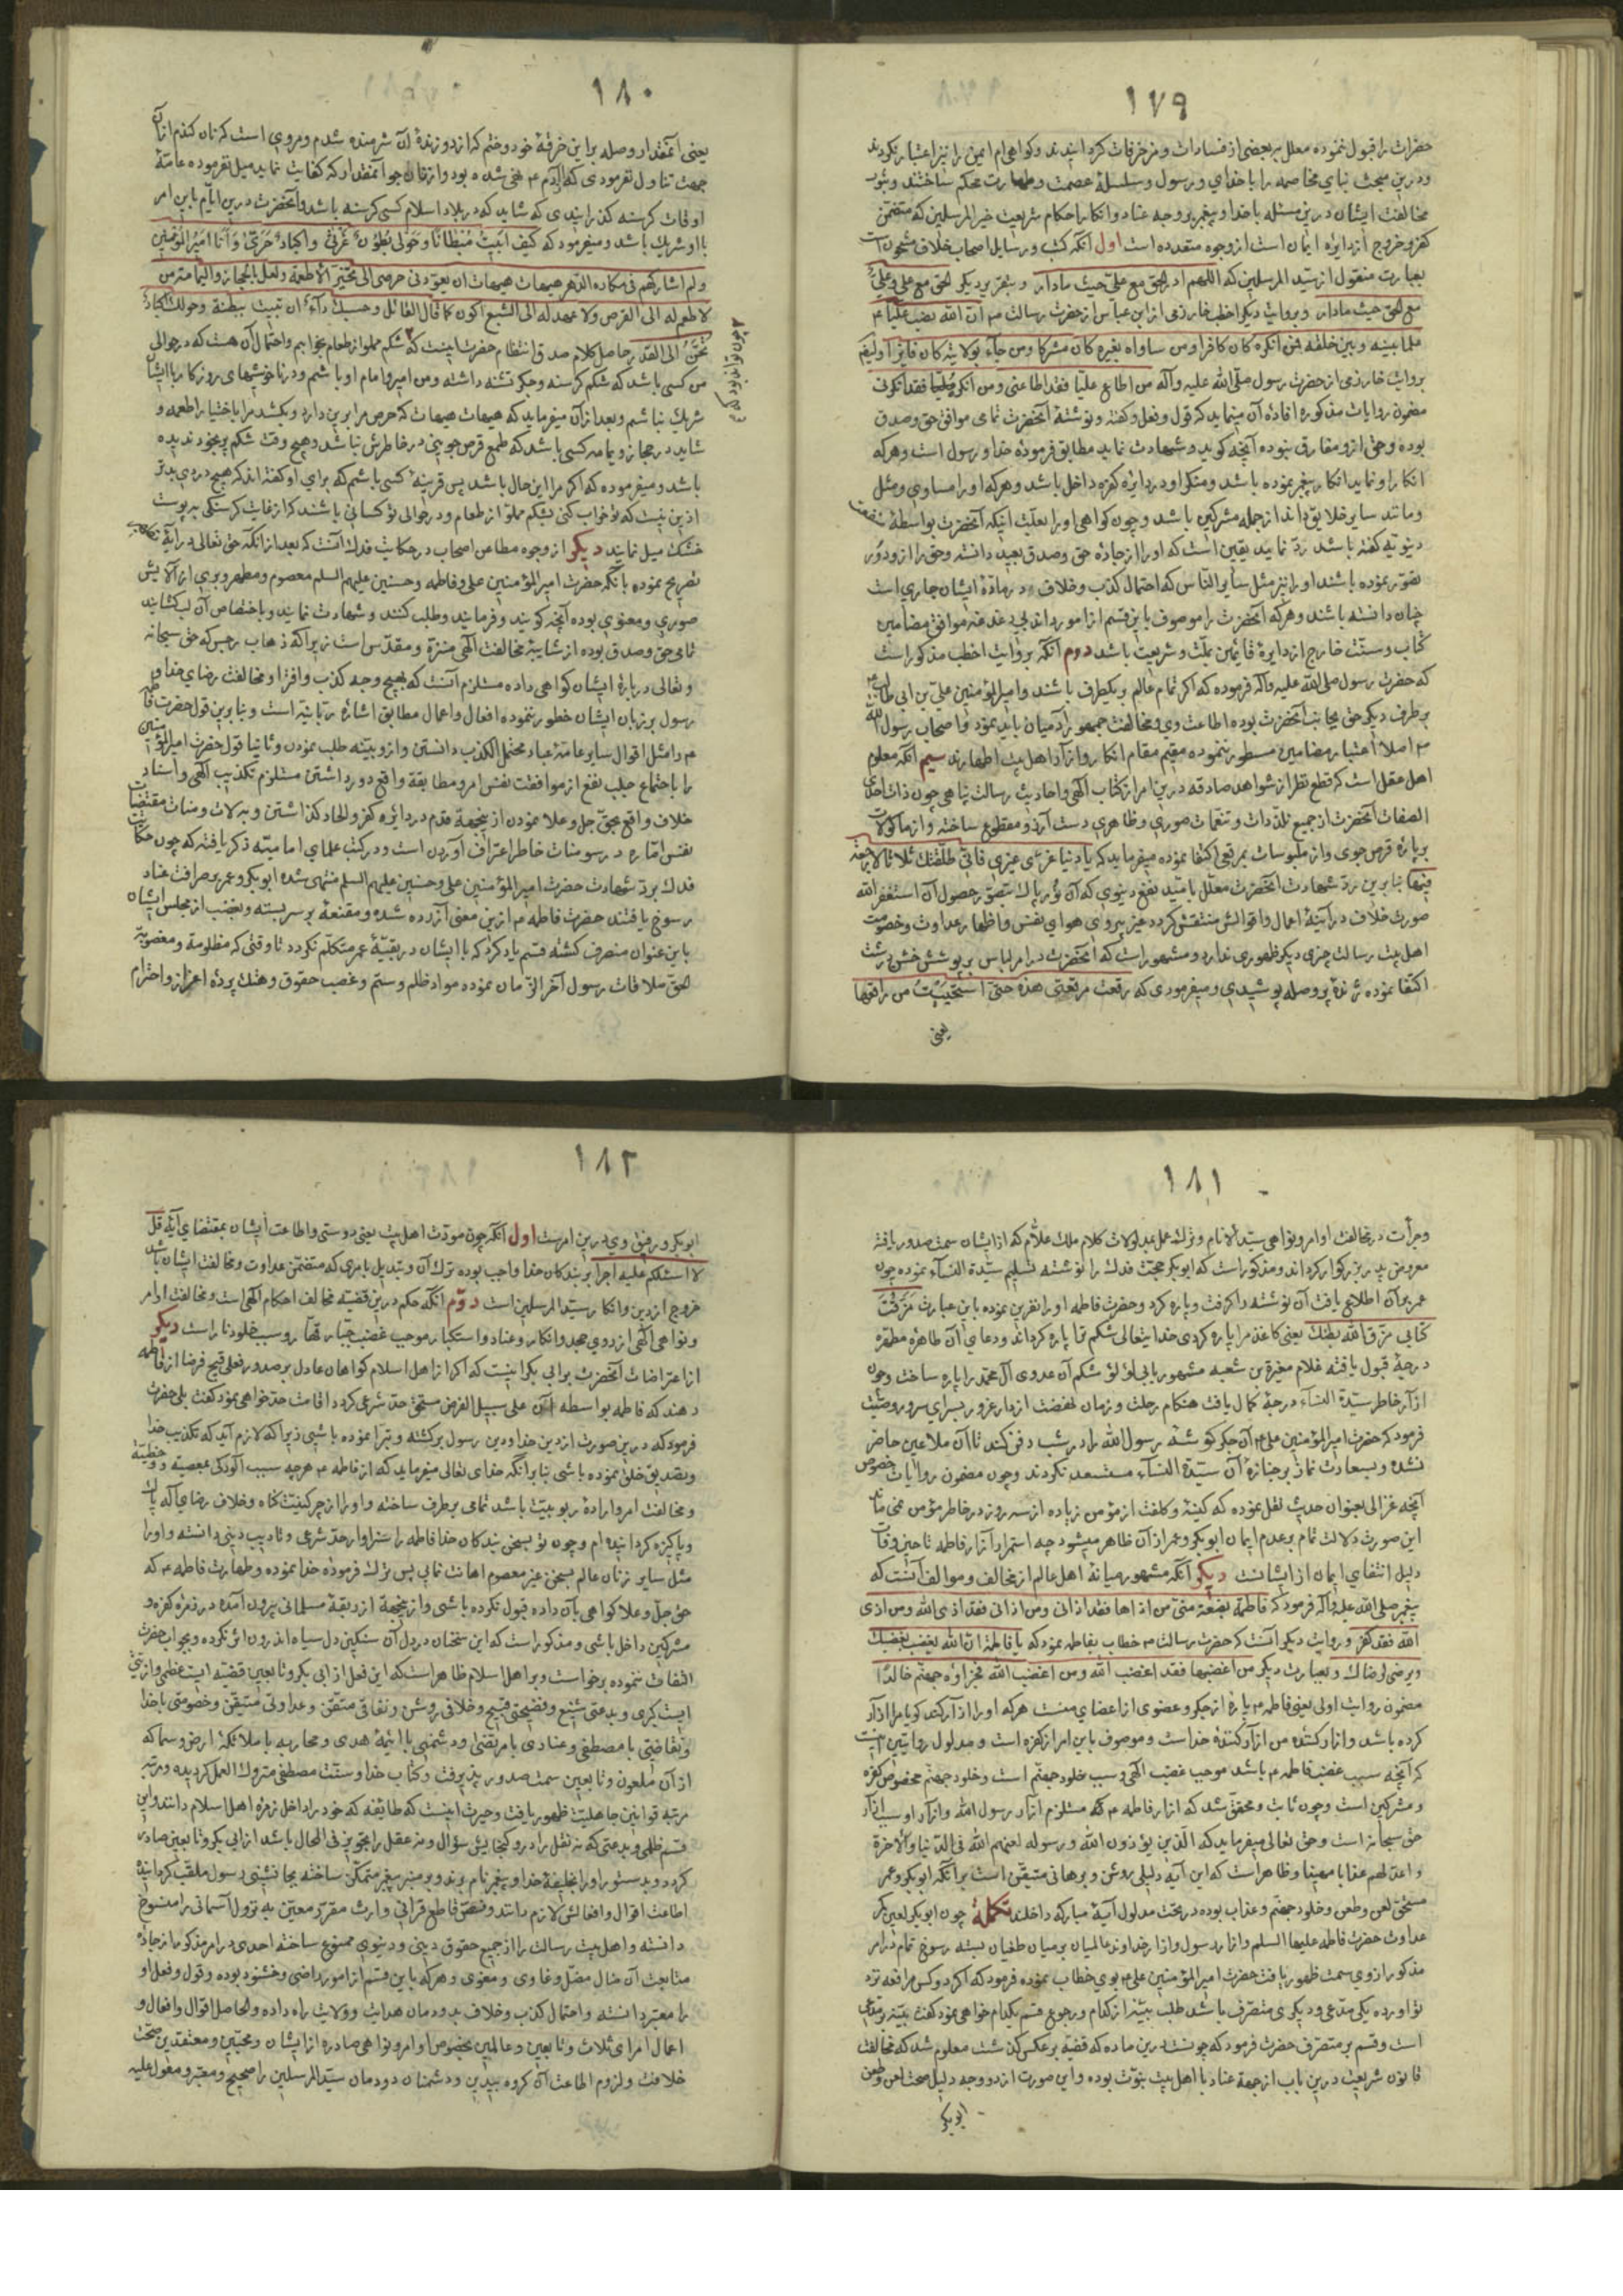 ١٧٩
حضرات را قبول ننموده معلل ببعضی از فسادات و مزخرفات گردانیدند و گواهی ام ایمن را نیز اعتبار نکردند
و درین مبحث بنای مخاصمه را با خدای و رسول و سلسلهٔ عصمت و طهارت محکم ساختند و ثبوت
مخالفت ایشان درین مسئله با خدا و پیغمبر بر وجه عناد و انکار احکام شریعت خیر المرسلین که متضمن
کفر و خروج از دایرهٔ ایمان است از وجوه متعدده است اول آنکه کتب و رسایل اصحاب خلاف مشحون است
بعبارت منقول از سید المرسلین که اللهم ادر الحق مع علی حیث مادار و بتقریر دیگر الحق مع علی و علی
مع الحق حیث مادار و بروایت دیگر اخطب خوارزمی از ابن عباس از حضرت رسالت م ان الله نصب علیا
علما بینه و بین خلقه فمن انکره کان کافرا ومن ساواه بغیره کان مشرکا ومن جاء بولایته کان فایزا و لیغم
بروایت خارزمی از حضرت رسول صلی الله علیه وآله من اطاع علیا فقد اطاعنی ومن انکر علیا فقد انکرنی
مضمون روایات مذکوره افادهٔ آن مینماید که قول و فعل و گفته و نوشتهٔ آنحضرت تمامی موافق حق و صدق
بوده و حق ازو مفارق نبوده آنچه گوید و شهادت نماید مطابق فرمودهٔ خدا و رسول است و هر که
انکار او نماید انکار پیغمبر نموده باشد و منکر او در دایرهٔ کفره داخل باشد و هر که او را مساوی و مثل
و مانند سایر خلایق داند از جمله مشرکین باشد و چون گواهی او را بعلت اینکه آنحضرت بواسطهٔ منفعت
دینویه گفته باشد رد نمایند یقین است که او را از جادهٔ حق و صدق بعید دانسته و حق را ازو دور
تصور نموده باشند او را نیز مثل سایر الناس که احتمال کذب و خلاف در مادهٔ ایشان جاری است
چنان دانسته باشند و هر که آنحضرت را موصوف باین قسم از امور داند بی دغدغه موافق مضامین
کتاب و سنت خارج از دایرهٔ قائمین بملت و شریعت باشد دوم آنکه بروایت اخطب مذکور است
که حضرت رسول صلی الله علیه وآله فرموده که اگر تمام عالم بیکطرف باشند و امیر المؤمنین علی بن ابی طالب
بر طرف دیگر حق بجانب آنحضرت بوده اطاعت وی و مخالفت جمهور آدمیان باید نمود و اصحاب رسول الله
م اصلا اعتبار مضامین مسطور ننموده مقیم مقام انکار و آزار اهل بیت اطهارند سیم آنکه معلوم
اهل عقل است که قطع نظر از شواهد صادقه درین امر از کتاب الهی و احادیث رسالت پناهی چون ذات
الصفات آنحضرت از جمیع تلذذات و تنعمات صوری و ظاهری دست آرزو مقطوع ساخته و از ماکولات
بر پارهٔ قرص جوی و از ملبوسات بمرقعی اکتفا نموده میفرماید که یا دنیا غری غیری فانی طلقتک ثلاثا لا رجعة
فیها بنابرین رد شهادت آنحضرت معلل بامید نفع دینوی که آن نور پاک تصور حصول آن استغفر الله
صورت خلاف در آینهٔ اعمال و اقوالش منتقش گردد غیر پیروی هوای نفس و اظهار عداوت و خصومت
اهل بیت رسالت چیزی دیگر ظهوری ندارد و مشهور است که آنحضرت در امر لباس بر پوشش خشن درشت
اکتفا نموده ژندهٔ پر وصله پوشیدی و میفرمودی که رقعت مرقعتی هذه حتی استحییت من راقعها
یعنی
١٨٠
یعنی آنمقدار وصله بر این خرقهٔ خود دوختم که از دوزندهٔ آن شرمنده شدم و مروی است که نان گندم از آن
جهت تناول نفرمودی که آدم م نهی شده بود و از نان جو آنمقدار که کفایت نماید میل نفرموده عامهٔ
اوقات گرسنه گذرانیدی که شاید که در بلاد اسلام کسی گرسنه باشد و آنحضرت درین ایام باین امر
با او شریک باشد و میفرمود که کیف ابیت مبطانا وحولی بطون غرثی واکباد حری وانا امیر المؤمنین
ولم اشارکهم فی مکاره الدهر هیهات هیهات ان یعودنی حرصی الی تخیر الاطعمة ولعل بالحجاز والیمامة من
لا طمع له الی القرص ولا عهد له الی الشبع اکون کما قال القائل وحسبک داء ان تبیت ببطنة وحولک اکباد
تحن الی القد حاصل کلام صدق انتظام حضرت اینست که شکم مملو از طعام بخوابم و احتمال آن هست که در حوالی
من کسی باشد که شکم گرسنه و جگر تشنه داشته و من امیر و امام او باشم و در ناخوشیهای روزگار با ایشان
شریک نباشم و بعد از آن میفرماید که هیهات هیهات که حرص مرا برین دارد و بکشد مرا باختیار اطعمه و
شاید در حجاز و یمامه کسی باشد که طمع قرص جوینی در خاطرش نباشد و هیچ وقت شکم پر بخود ندیده
باشد و میفرموده که اگر مرا این حال باشد پس قرینهٔ کسی باشم که برای او گفته اند که هیچ دردی بدتر
ازین نیست که تو خواب کنی بشکم مملو از طعام و در حوالی تو کسانی باشند که از غایت گرسنگی به پوست
خشک میل نمایند دیگر از وجوه مطاعن اصحاب در حکایت فدک آنست که بعد از آنکه حق تعالی در آیهٔ
تصریح نموده بآنکه حضرت امیر المؤمنین علی و فاطمه و حسنین علیهم السلم معصوم و مطهر و بری از آلایش
صوری و معنوی بوده آنچه گویند و فرمایند و طلب کنند و شهادت نمایند و باختصاص آن لب گشایند
تمامی حق و صدق بوده از شایبهٔ مخالفت الهی منزه و مقدس است زیرا که ذهاب رجس که حق سبحانه
و تعالی دربارهٔ ایشان گواهی داده مستلزم آنست که بهیچ وجه کذب و افترا و مخالفت رضای خدا و
رسول بر زبان ایشان خطور ننموده افعال و اعمال مطابق اشارهٔ ربانیه است و بنابرین قول حضرت فاطمه
م را مثل اقوال سایر عامهٔ عباد محتمل الکذب دانستن و ازو بینه طلب نمودن و ثانیا قول حضرت امیر المؤمنین
را باحتماع جلب نفع از موافقت نفس امر و مطابقهٔ واقع دور داشتن مستلزم تکذیب الهی و اسناد
خلاف واقع بحق جل و علا نمودن از ینجهة قدم در دایرهٔ کفر و الحاد گذاشتن و به لات و منات مقتضیات
نفس اماره در سومنات خاطر اعتراف آوردن است و در کتب علمای امامیه ذکر یافته که چون حکایت
فدک برد شهادت حضرت امیر المؤمنین علی و حسنین علیهم السلم منتهی شده ابوبکر و عمر بر صرافت عناد
رسوخ یافتند حضرت فاطمه م ازین معنی آزرده شده و مقنعه بر سر بسته و بغضب از مجلس ایشان
باین عنوان منصرف گشته قسم یاد کرد که با ایشان در بقیهٔ عمر متکلم نگردد تا وقتی که مظلومة و مغصوبة
الحق ملاقات رسول آخر الزمان نموده مواد ظلم و ستم و غصب حقوق و هتک پردهٔ اعزاز و احترام
١٨١
و جرأت در مخالفت اوامر و نواهی سید الانام و ترک عمل بمدلولات کلام ملک علام که از ایشان سمت صدور یافته
معروض پدر بزرگوار گرداند و مذکور است که ابوبکر حجت فدک را نوشته تسلیم سیدة النساء نموده چون
عمر بر آن اطلاع یافت آن نوشته را گرفت و پاره کرد و حضرت فاطمه او را نفرین نموده باین عبارت مزقت
کتابی مزق الله بطنک یعنی کاغذ مرا پاره کردی خدایتعالی شکم ترا پاره گرداند و دعای آن طاهرهٔ مطهره
درجهٔ قبول یافته غلام مغیرة بن شعبه مشهور بابی لؤلؤ شکم آن عدوی آل محمد را پاره ساخت و چون
آزار خاطر سیدة النساء درجهٔ کمال یافت هنگام رحلت و زمان نهضت از دار غرور بسرای سرور وصیت
فرمود که حضرت امیر المؤمنین علی م آن جگر گوشهٔ رسول الله را در شب دفن کند تا آن ملاعین حاضر
نشده و بسعادت نماز بر جنازهٔ آن سیدة النساء مستسعد نگردند و چون مضمون روایات خصوص
آنچه غزالی بعنوان حدیث نقل نموده که کینه و کلفت از مؤمن زیاده از سه روز در خاطر مؤمن نمی ماند
این صورت دلالت تمام بر عدم ایمان ابوبکر و عمر از آن ظاهر میشود چه استمرار آزار فاطمه تا حین وفات
دلیل انتفای ایمان از ایشانست دیگر آنکه مشهور میانهٔ اهل عالم از مخالف و موالف آنست که
پیغمبر صلی الله علیه وآله فرمود که فاطمة بضعة منی من اذاها فقد اذانی ومن اذانی فقد اذی الله ومن اذی
الله فقد کفر و روایت دیگر آنست که حضرت رسالت م خطاب بفاطمه نمود که یا فاطمة ان الله یغضب بغضبک
ویرضی لرضاک و بعبارت دیگر من اغضبها فقد اغضب الله ومن اغضب الله فجزاؤه جهنم خالدا
مضمون روایت اولی یعنی فاطمه م پارهٔ از جگر و عضوی از اعضای منست هر که او را آزار کند گویا مرا آزار
کرده باشد و آزار کنندهٔ من آزار کنندهٔ خداست و موصوف باین امر از کفره است و مدلول روایتین اینست
که آنچه سبب غضب فاطمه م باشد موجب غضب الهی و سبب خلود جهنم است و خلود جهنم مخصوص کفره
و مشرکین است و چون ثابت و محقق شد که آزار فاطمه م که مستلزم آزار رسول الله و آزار او سبب آزار
حق سبحانه است و حق تعالی میفرماید که الذین یؤذون الله ورسوله لعنهم الله فی الدنیا والاخرة
واعد لهم عذابا مهینا و ظاهر است که این آیه دلیلی روشن و برهانی متیقن است بر آنکه ابوبکر و عمر
مستحق لعن و طعن و خلود جهنم و عذاب بوده در تحت مدلول آیهٔ مبارکه داخلند تکملة چون ابوبکر لعین بکر
عداوت حضرت فاطمه علیها السلم و آزار رسول و آزار خداوند عالمیان بر میان طغیان بسته رسوخ تمام در امر
مذکور ازوی سمت ظهور یافت حضرت امیر المؤمنین علی م بوی خطاب نموده فرمود که اگر دو کس مرافعه نزد
تو آورده یکی مدعی و دیگری متصرف باشد طلب بینه از کدام و رجوع قسم بکدام خواهی نمود گفت بینه بر مدعی
است و قسم بر متصرف حضرت فرمود که چونست درین ماده که قضیه بر عکس گذشت معلوم شد که مخالفت
قانون شریعت درین باب از جهة عناد با اهل بیت نبوت بوده و این صورت از دو وجه دلیل صحت لعن و طعن
ابوبکر
١٨٢
ابوبکر و رفیق وی درین امرست اول آنکه چون مودت اهل بیت یعنی دوستی و اطاعت ایشان بمقتضای آیهٔ قل
لا اسئلکم علیه اجرا بر بندگان خدا واجب بوده ترک آن و تبدیل بامری که متضمن عداوت و مخالفت ایشان باشد
خروج از دین و انکار سید المرسلین است دوم آنکه حکم درین قضیه مخالف احکام الهی است و مخالفت اوامر
و نواهی الهی از روی جحد و انکار و عناد و استکبار موجب غضب جبار قهار و سبب خلود نار است دیگر
از اعتراضات آنحضرت بر ابی بکر اینست که اگر از اهل اسلام گواهان عادل بر صدور فعلی قبیح فرضا از فاطمه
دهند که فاطمه بواسطه آن علی سبیل الفرض مستحق حد شرعی گردد اقامت حد خواهی نمود گفت بلی حضرت
فرمود که درین صورت از دین خدا و دین رسول برگشته و تبرا نموده باشی زیرا که لازم آید که تکذیب خدا
و تصدیق خلق نموده باشی بنابر آنکه خدای تعالی میفرماید که از فاطمه م هر چه سبب آلودگی بمعصیة و خطیئة
و مخالفت امر و ارادهٔ ربوبیت باشد تمامی بر طرف ساخته و او را از چرکینیت گناه و خلاف رضای آله پاک
و پاکیزه گردانیده ام و چون تو بسخن بندگان خدا فاطمه را سزاوار حد شرعی و تادیب دینی دانسته و او را
مثل سایر زنان عالم بسخن غیر معصوم اهانت نمایی پس ترک فرمودهٔ خدا نموده و طهارت فاطمه م که
حق جل و علا گواهی بآن داده قبول نکرده باشی و از ینجهة از ربقهٔ مسلمانی بیرون آمده در زمرهٔ کفره و
مشرکین داخل باشی و مذکور است که این سخنان در دل آن سنگین دل سیاه اندرون اثر نکرده و بجواب حضرت
التفات ننموده برخواست و بر اهل اسلام ظاهر است که این فعل از ابی بکر و تابعین قضیه ایست عظمی و اذیتی
ایست کبری و بدعتی شنیع و فضیحتی قبیح و خلافی روشن و نفاقی متقن و عداوتی متیقن و خصومتی با خدا
و نفاقیتی با مصطفی و عنادی با مرتضی و دشمنی با ائمهٔ هدی و محاربه با ملائکهٔ ارض و سما که
از آن ملعون و تابعین سمت صدور پذیرفت و کتاب خدا و سنت مصطفی متروک العمل گردیده و مرتبهٔ
مرتبه قوانین جاهلیت ظهور یافت و حیرت اینست که طایفهٔ که خود را داخل زمرهٔ اهل اسلام دانند و این
قسم ظلمی و بدعتی که نه نقل را درو گنجایش سؤال و نه عقل را تجویز فی الحال باشد از ابی بکر و تابعین صادر
کردد و بدستور او را خلیفهٔ خدا و پیغمبر نام برند و بر منبر پیغمبر متمکن ساخته بجانشینی رسول ملقب گردانیده
اطاعت اقوال و افعالش لازم دانند و نصوص قاطع قرآنی و ارث مقرر معین به نزول آسمانی را منسوخ
دانسته و اهل بیت رسالت را از جمیع حقوق دینی و دنیوی ممنوع ساخته احدی در امر مذکور از جادهٔ
متابعت آن ضال مضل و غاوی و مغوی و هر که باین قسم از امور راضی و خشنود بوده و قول و فعل او
را معتبر دانسته و احتمال کذب و خلاف بدودمان هدایت و ولایت راه داده و الحاصل اقوال و افعال و
اعمال امرای ثلاث و تابعین و عالمین بخصوص اوامر و نواهی صادره از ایشان و محبین و معتقدین صحت
خلافت و لزوم اطاعت آن گروه بیدین و دشمنان دودمان سید المرسلین را صحیح و معتبر و معول علیه